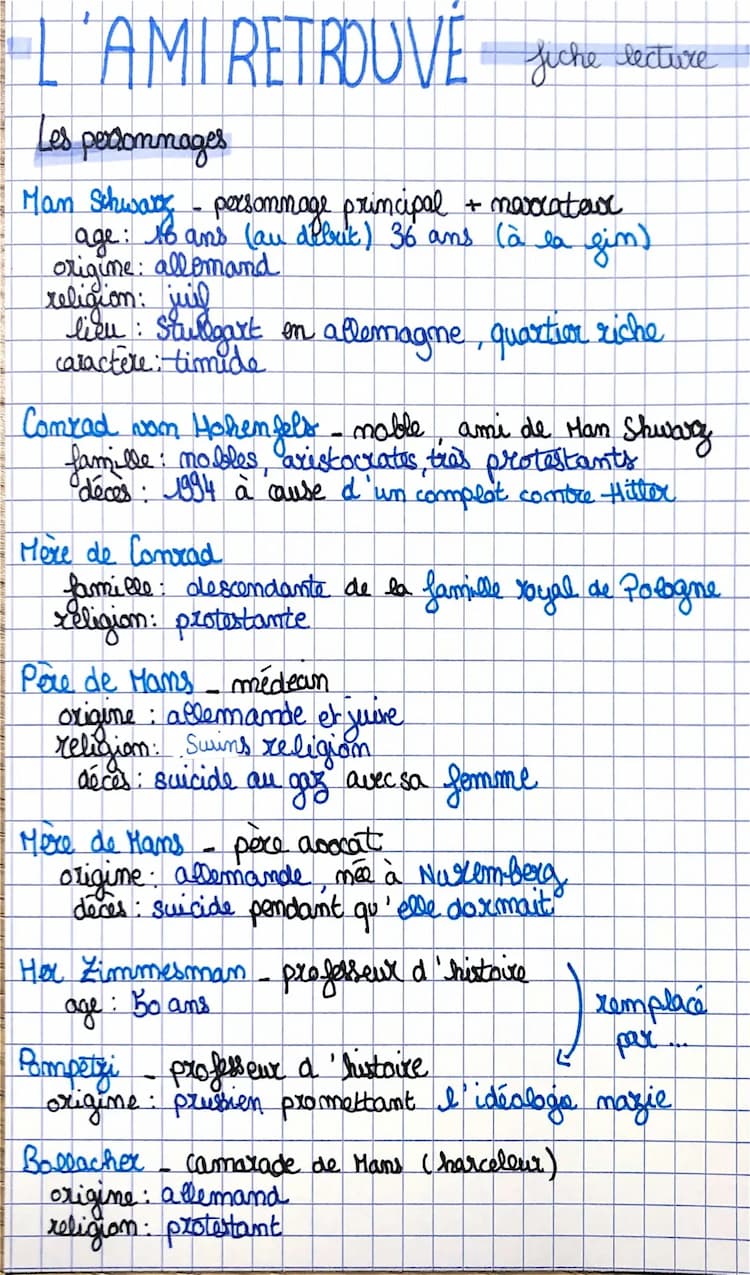 L'AMI RETROUVÉ fiche lecture
Les personnages
Han Schwarz - personnage principal + narrateur
age : 16 ans (au début) 36 ans (à la fin)
origine : allemand
religion : juif
lieu : Stuttgart en allemagne, quartier riche
caractère : timide
Conrad von Hohenfels - noble, ami de Han Shwarz
famille : nobles, aristocrates, très protestants
décès : 1994 à cause d'un complot contre Hitler
Mère de Conrad
famille : descendante de la famille royal de Pologne
religion : protestante
Père de Hans - médecin
origine : allemande et juive
religion : religion
décès : suicide au gaz avec sa femme
Mère de Hans - père avocat
origine : allemande, née à Nuremberg
décès : suicide pendant qu'elle dormait
Her Zimmesman - professeur d'histoire
age : 50 ans
remplacé
par ...
Pompetzi - professeur d'histoire
origine : prussien promettant l'idéologie nazie
Bollacher - camarade de Hans (harceleur)
origine : allemand
religion : protestant